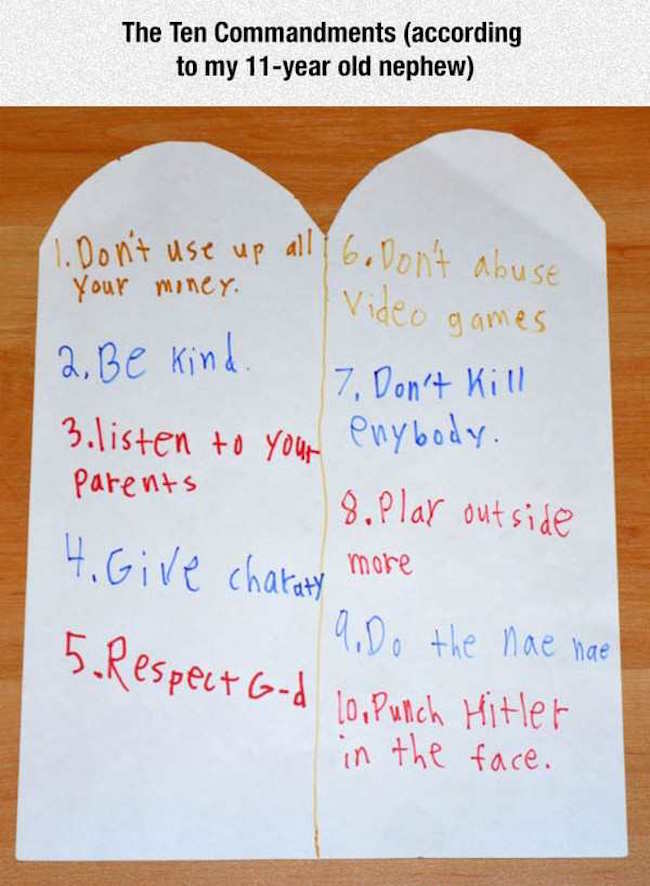 The Ten Commandments (according
to my 11-year old nephew)
1. Don't use up all
your money.
2. Be kind.
3. listen to your
parents
4. Give charaty
5. Respect G-d
6. Don't abuse
Video games
7. Don't Kill
enybody.
8. Play outside
more
9. Do the nae nae
10. Punch Hitler
in the face.